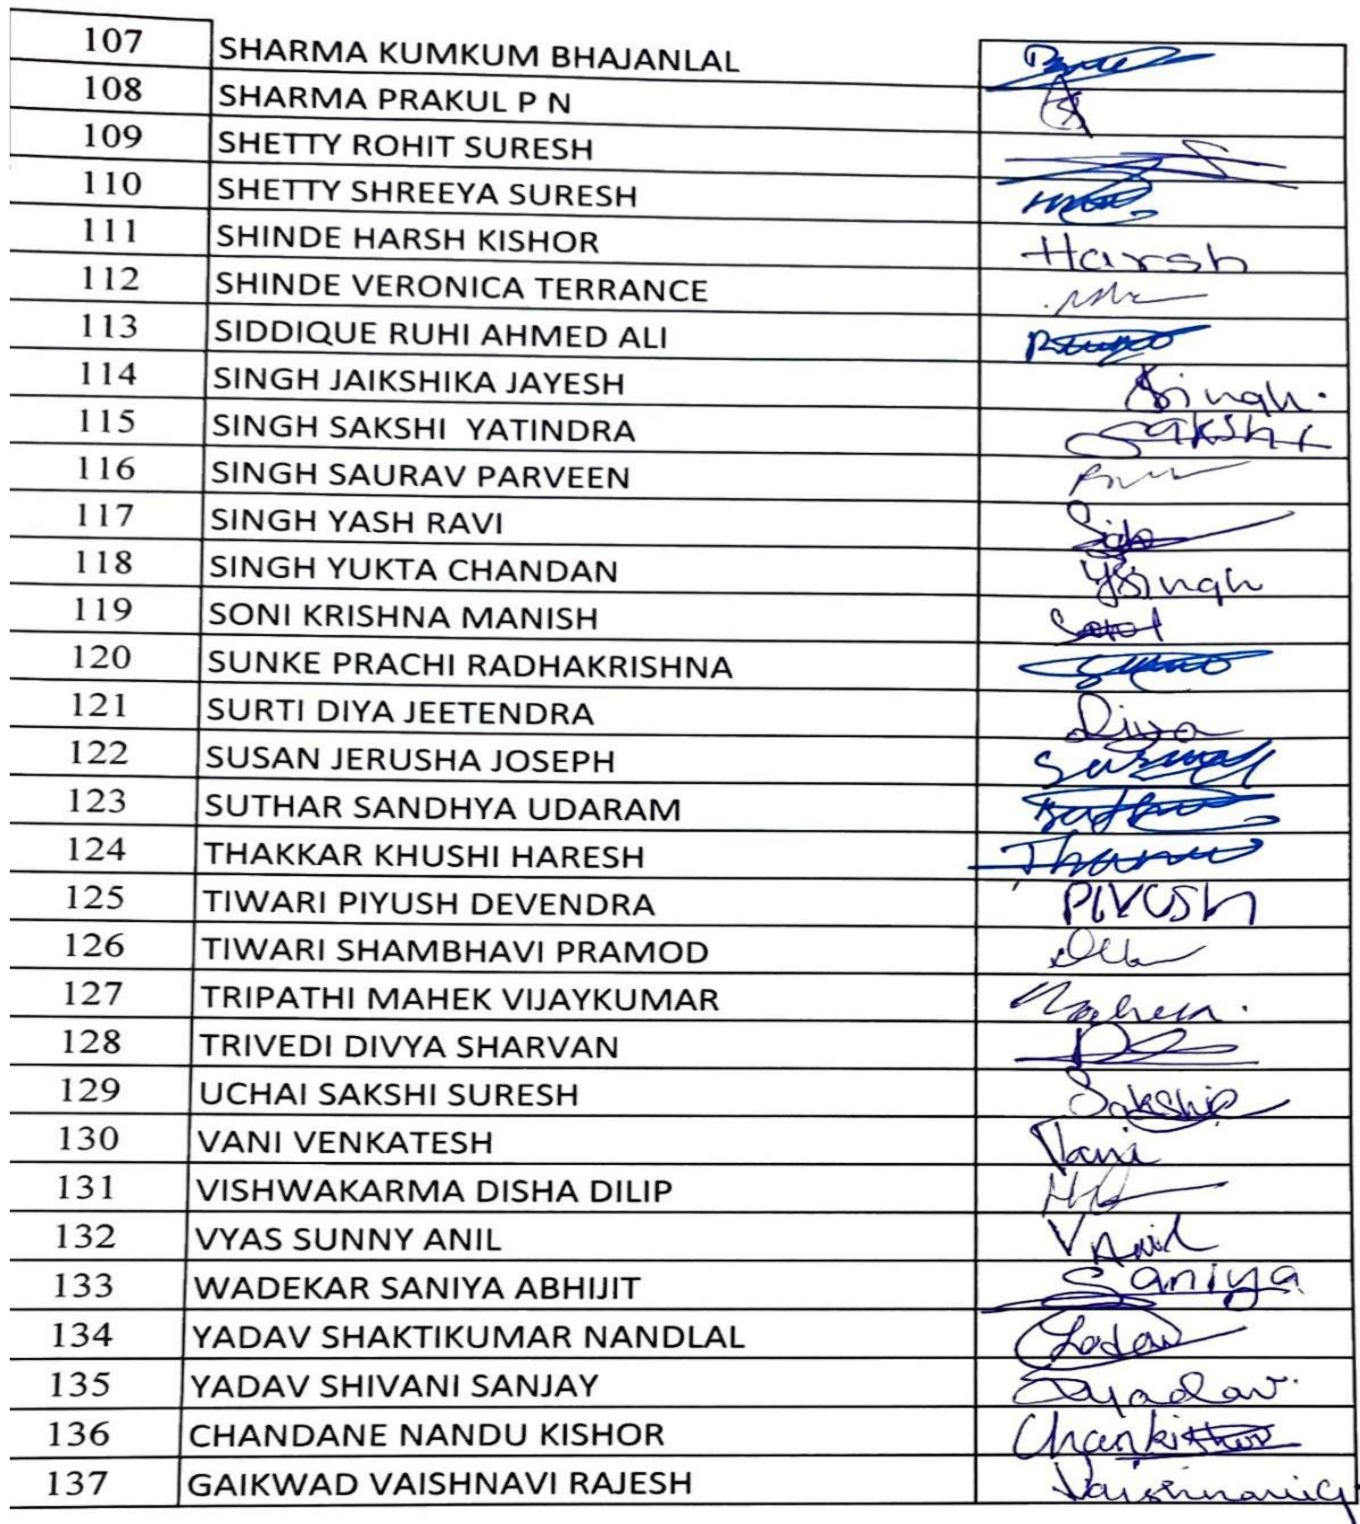 107 SHARMA KUMKUM BHAJANLAL
108 SHARMA PRAKUL P N
109 SHETTY ROHIT SURESH
110 SHETTY SHREEYA SURESH
111 SHINDE HARSH KISHOR Harsh
112 SHINDE VERONICA TERRANCE
113 SIDDIQUE RUHI AHMED ALI
114 SINGH JAIKSHIKA JAYESH Singh.
115 SINGH SAKSHI YATINDRA Sakshi
116 SINGH SAURAV PARVEEN
117 SINGH YASH RAVI
118 SINGH YUKTA CHANDAN YSingh
119 SONI KRISHNA MANISH
120 SUNKE PRACHI RADHAKRISHNA
121 SURTI DIYA JEETENDRA Diya
122 SUSAN JERUSHA JOSEPH
123 SUTHAR SANDHYA UDARAM
124 THAKKAR KHUSHI HARESH
125 TIWARI PIYUSH DEVENDRA PIYUSH
126 TIWARI SHAMBHAVI PRAMOD
127 TRIPATHI MAHEK VIJAYKUMAR
128 TRIVEDI DIVYA SHARVAN
129 UCHAI SAKSHI SURESH
130 VANI VENKATESH Vani
131 VISHWAKARMA DISHA DILIP
132 VYAS SUNNY ANIL V Anil
133 WADEKAR SANIYA ABHIJIT Saniya
134 YADAV SHAKTIKUMAR NANDLAL Yadav
135 YADAV SHIVANI SANJAY Syadav.
136 CHANDANE NANDU KISHOR
137 GAIKWAD VAISHNAVI RAJESH